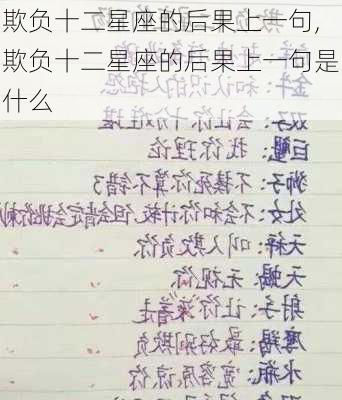 欺负十二星座的后果上一句,
欺负十二星座的后果上一句是
什么
金牛：和认识的人抱怨
双子：会让你十分难堪
巨蟹：找你理论
狮子：不揍死你算不错了
处女：不会和你计较,但会肯定会挑你刺
天秤：叫人欺负你
天蝎：无视你
射手：让你滚着走
摩羯：最好别欺负
水瓶：宽容原谅你